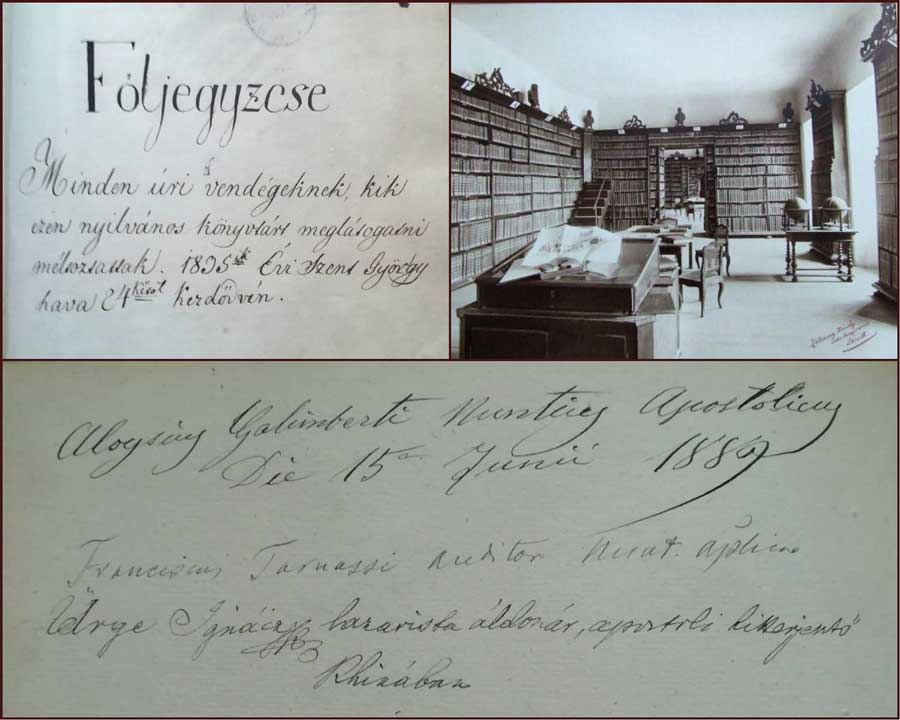 Följegyzése
Minden úri vendégeknek, kik
ezen nyilvános könyvtárt meglátogatni
méltóztattak. 1835ik Évi Szent György
hava 24kétől kezdődvén.
Aloysius Galimberti Nuntius Apostolicus
Die 15a Junii 1889
Franciscus Tarnassi Auditor Nunt. Aplicae
Ürge Ignácz lazarista áldozár, apostoli hitterjentő
Khinában